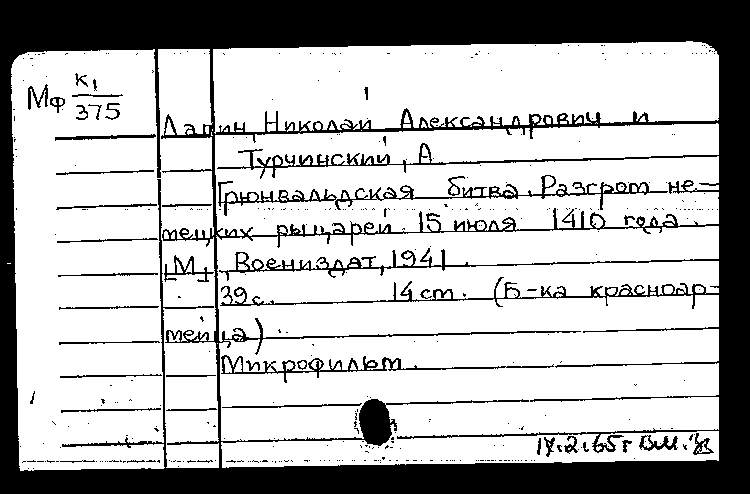 Мф К1/375
Лапин, Николай Александрович и
Турчинский, А
Грюнвальдская битва. Разгром не-
мецких рыцарей 15 июля 1410 года.
[М], Воениздат, 1941.
39 с. 14 см. (Б-ка красноар-
мейца)
Микрофильм.
17.2.65г